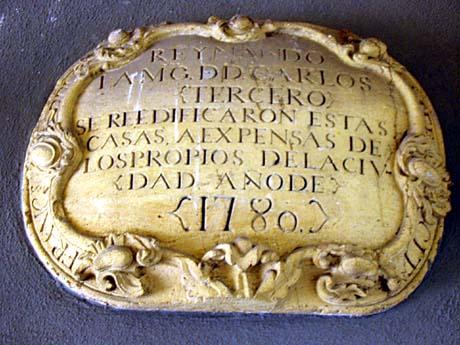 REYNANDO
LAMG.D.D.CARLOS
{TERCERO}
SE REEDIFICARON ESTAS
CASAS, A EXPENSAS DE
LOS PROPIOS DE LA CIV-
{DAD AÑO DE}
{1780.}